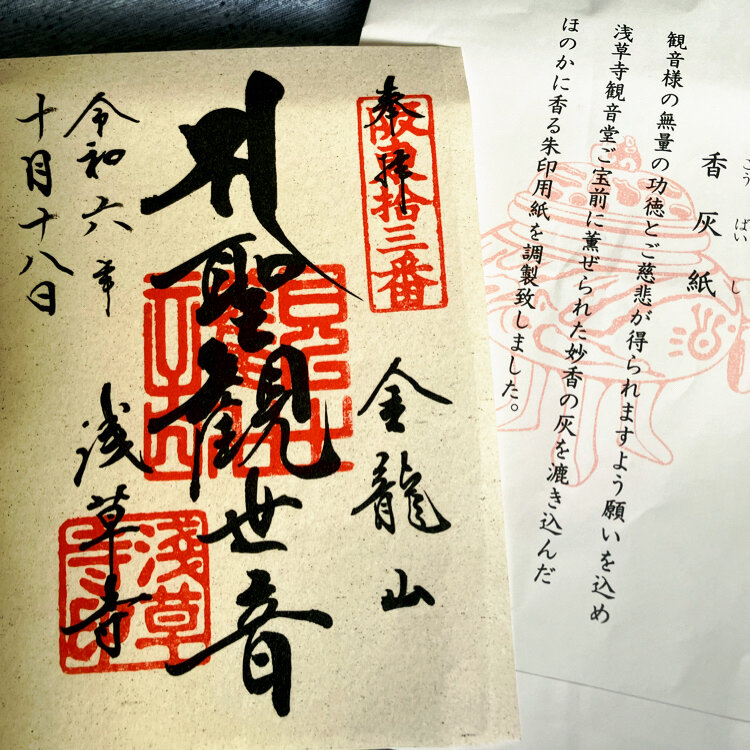 こう ばい し
香灰紙
観音様の無量の功徳とご慈悲が得られますよう願いを込め
浅草寺観音堂ご宝前に薫ぜられた妙香の灰を漉き込んだ
ほのかに香る朱印用紙を調製致しました。
奉拝
阪東拾三番
金龍山
聖観世音
浅草寺
淺草
令和六年
十月十八日